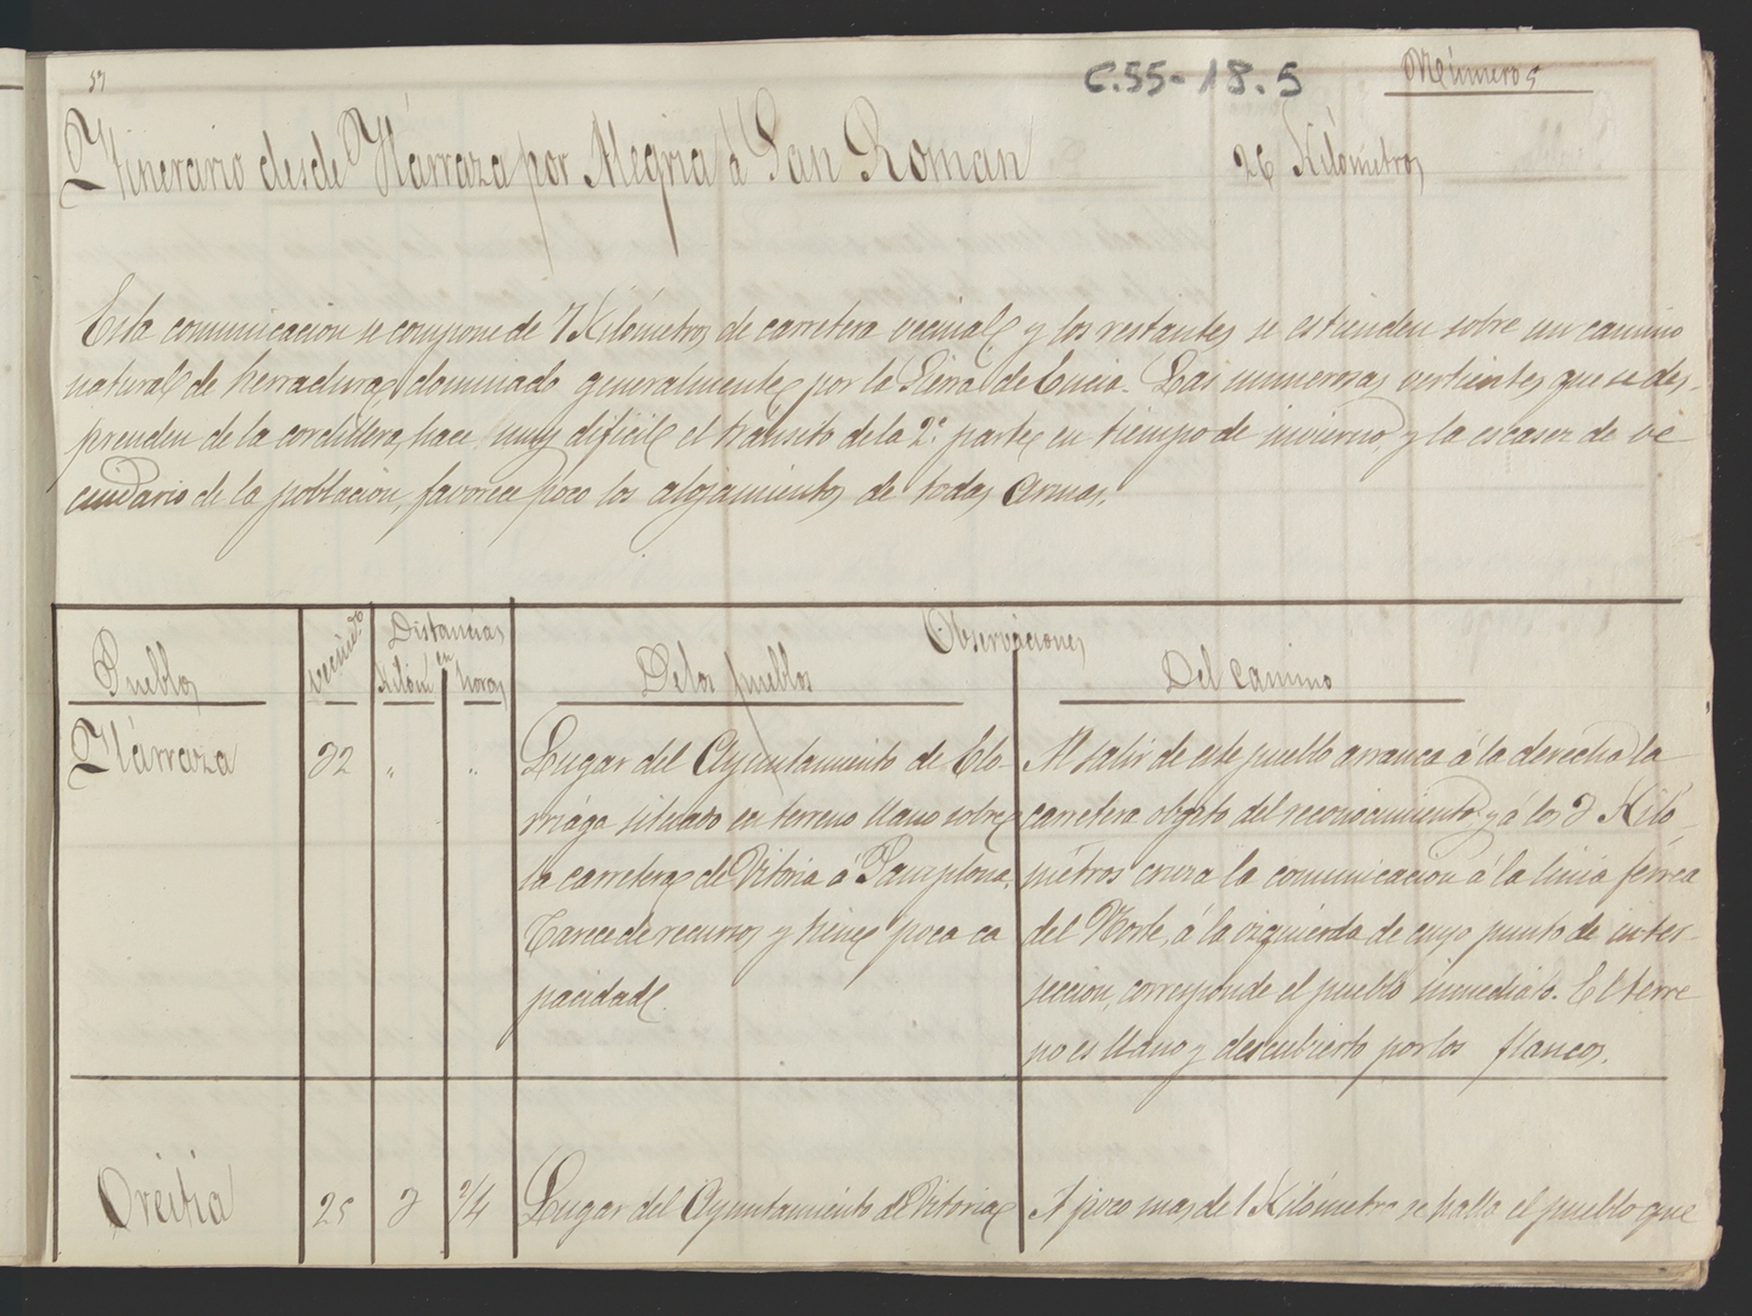 57
C.55-18.5
Número 5
Itinerario desde Ilárraza por Alegria á San Roman
26 Kilómetros
Esta comunicacion se compone de 7 Kilómetros de carretera vecinal y los restantes se estienden sobre un camino
natural de herradura, dominado generalmente por la Sierra de Encia. Las numerosas vertientes que se des-
prenden de la cordillera, hace muy dificil el tránsito de la 2ª parte en tiempo de invierno, y la escasez de ve
cindario de la poblacion, favorece poco los alojamientos de todas armas.
Pueblos
vecind.º
Distancias
en
Kilóm
horas
Observaciones
De los pueblos
Del camino
Ilárraza
32
"
"
Lugar del Ayuntamiento de Elo-
rriaga situado en terreno llano sobre
la carretera de Vitoria á Pamplona.
Carece de recursos y tiene poca ca
pacidad.
Al salir de este pueblo arranca á la derecha la
carretera objeto del reconocimiento y á los 3 Kiló-
métros cruza la comunicacion á la linia férrea
del Norte, á la izquierda de cuyo punto de inter-
seccion, corresponde el pueblo inmediato. El terre
no es llano y descubierto por los flancos.
Oreitia
25
3
3/4
Lugar del Ayuntamiento de Vitoria
A poco mas de 1 Kilómetro se halla el pueblo que